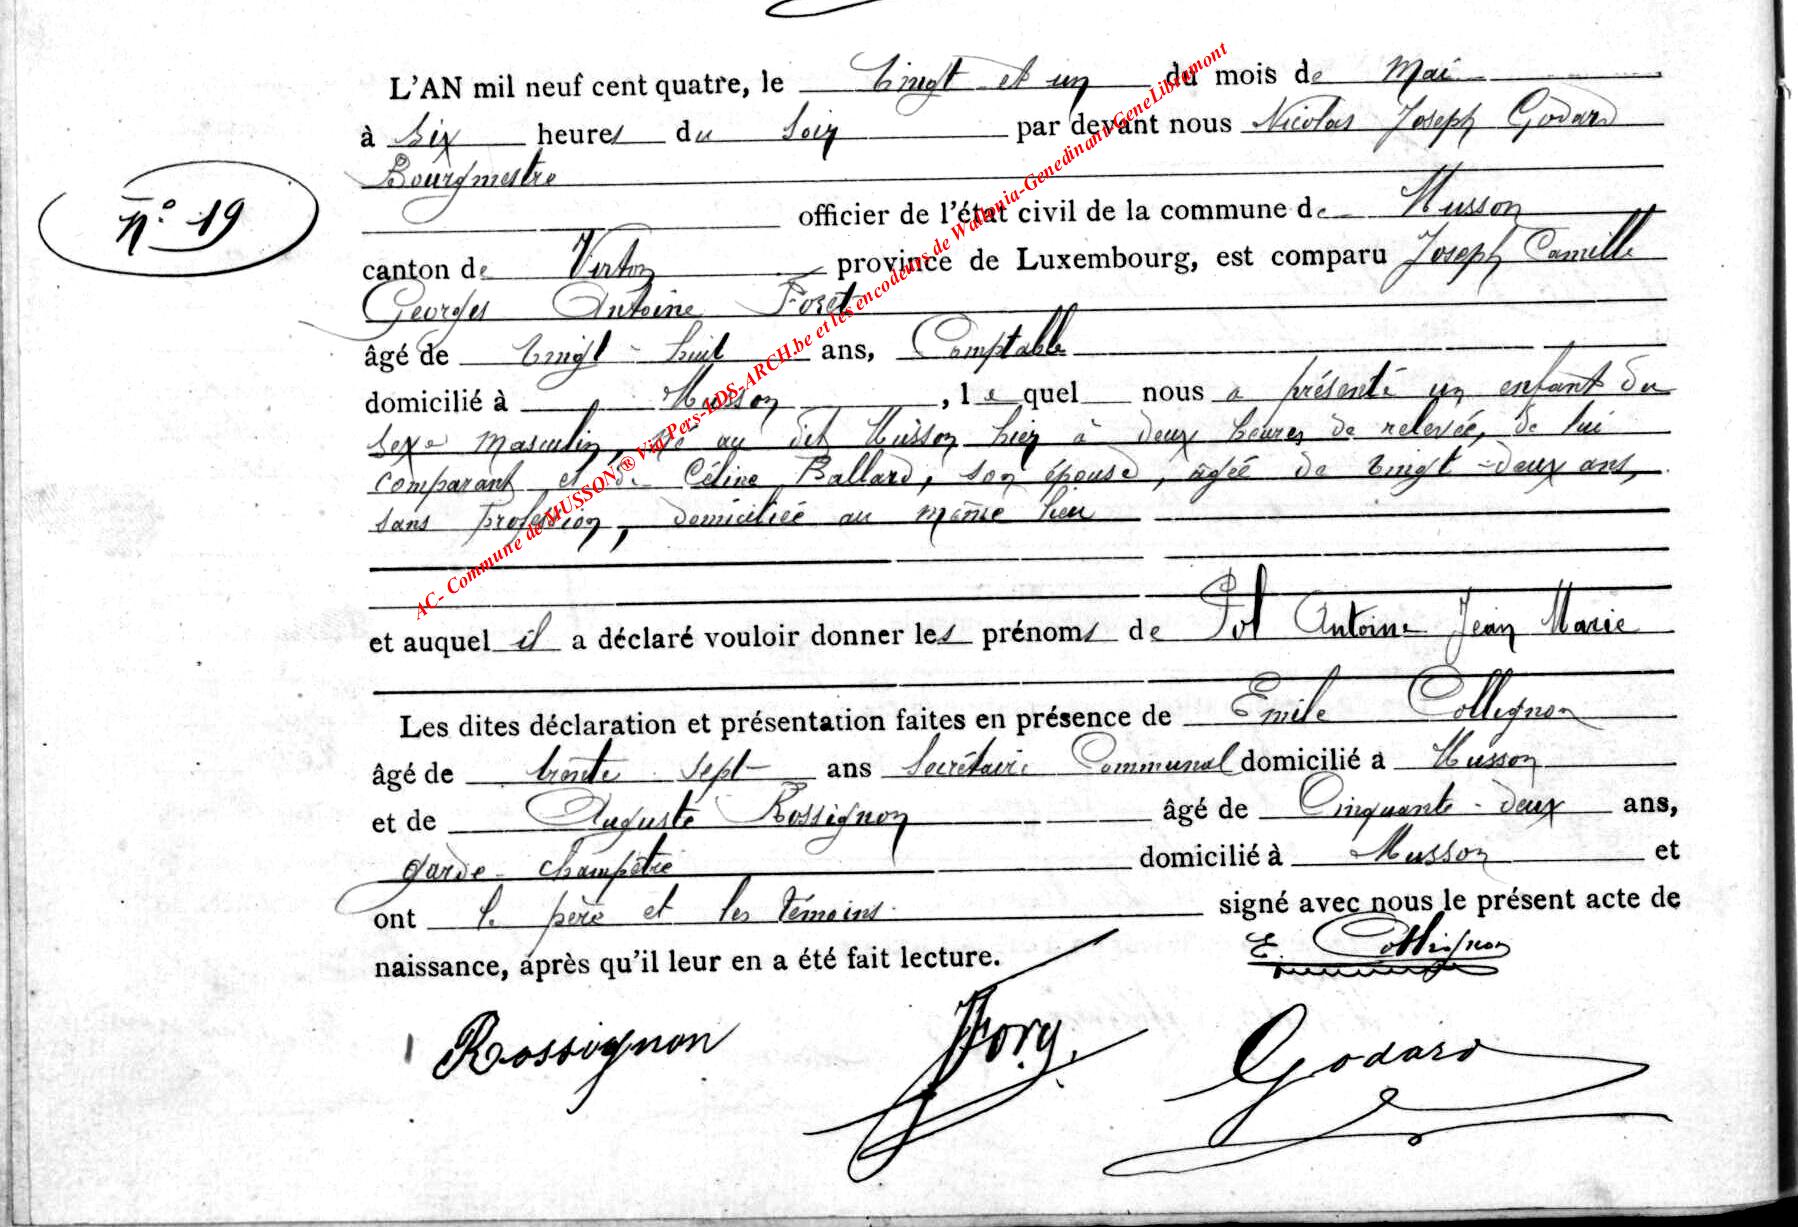 L'AN mil neuf cent quatre, le vingt et un du mois de Mai
à Six heures du Soir par devant nous Nicolas Joseph Godard
Bourgmestre
N° 19
officier de l'état civil de la commune de Musson
canton de Virton province de Luxembourg, est comparu Joseph Camille
Georges Antoine
âgé de vingt-huit ans, Comptable
domicilié à Musson, lequel nous a présenté un enfant du
sexe masculin, né au dit Musson hier à deux heures de relevée, de lui
comparant et de Céline Ballard, son épouse, âgée de vingt-deux ans,
sans profession, domiciliée au même lieu
et auquel il a déclaré vouloir donner les prénoms de Pol Antoine Jean Marie
Les dites déclaration et présentation faites en présence de Emile Collignon
âgé de trente sept ans Secrétaire Communal domicilié a Musson
et de Auguste Rossignon âgé de Cinquante-deux ans,
garde-champêtre domicilié à Musson et
ont le père et les témoins signé avec nous le présent acte de
naissance, après qu'il leur en a été fait lecture.
E. Collignon
Rossignon Godard
AC- Commune de MUSSON ® Via Pers-LDS-ARCH.be et les encodeurs de Wallonia-Genedinant-GeneLibramont